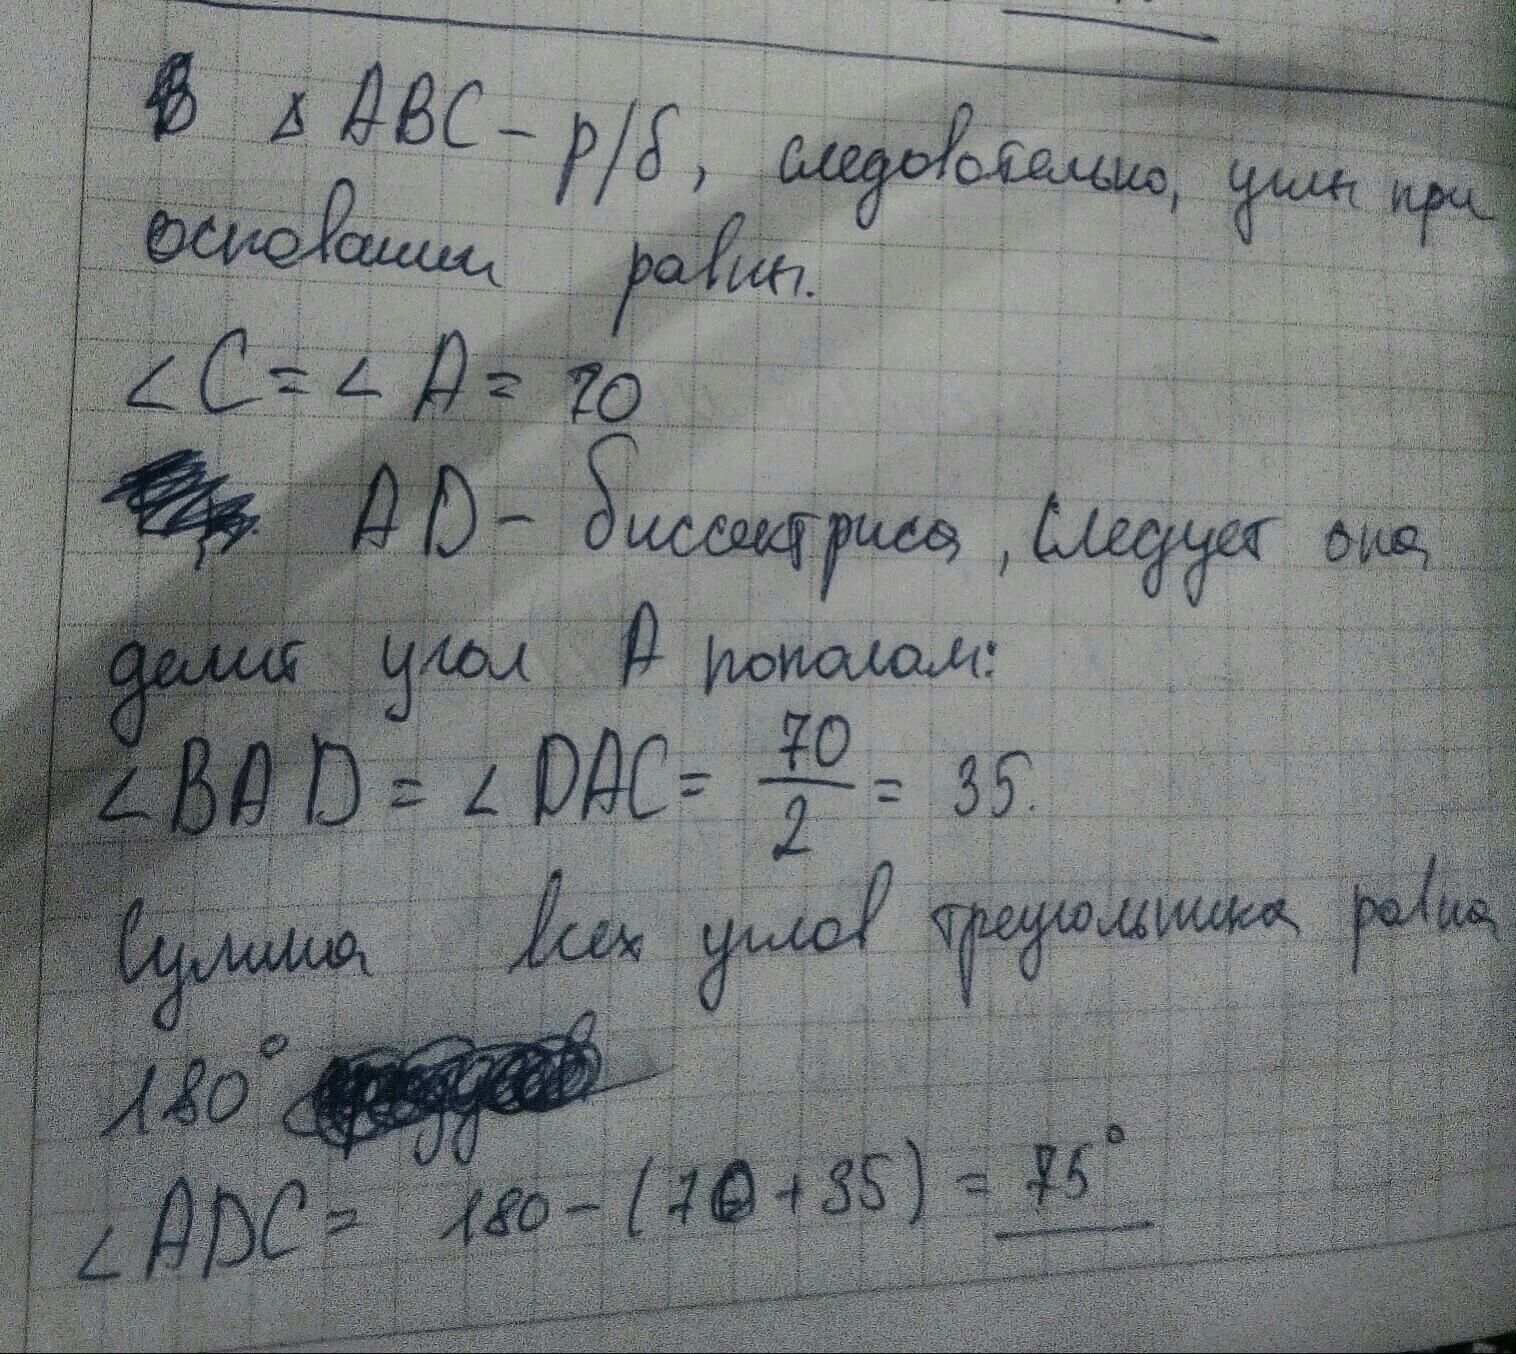 В △ ABC - р/б, следовотельно, углы при
основании равны.
∠C = ∠A = 70
AD - биссектриса, следует она
делит угол A пополам:
∠BAD = ∠DAC = 70/2 = 35.
Сумма всех углов треугольника равна
180°
∠ADC = 180 - (70 + 35) = 75°